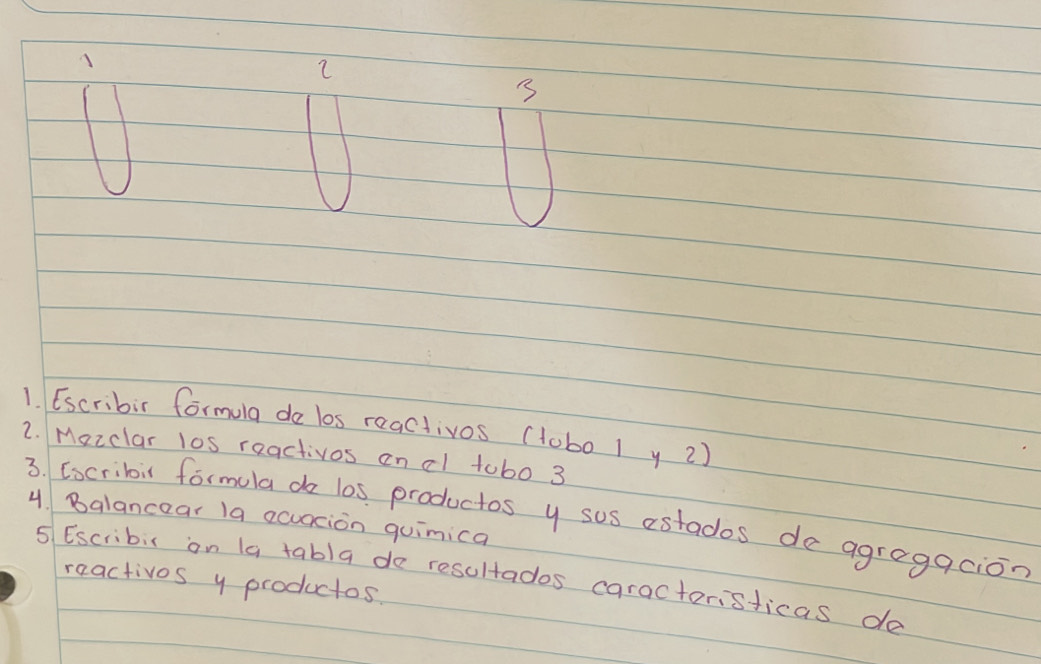 1 2 3
1. Escribir fórmula de los reactivos (tubo 1 y 2)
2. Mezclar los reactivos en el tubo 3
3. Escribir fórmula de los productos y sus estados de agregación
4. Balancear la ecuación química
5 Escribir en la tabla de resultados características de
reactivos y productos.